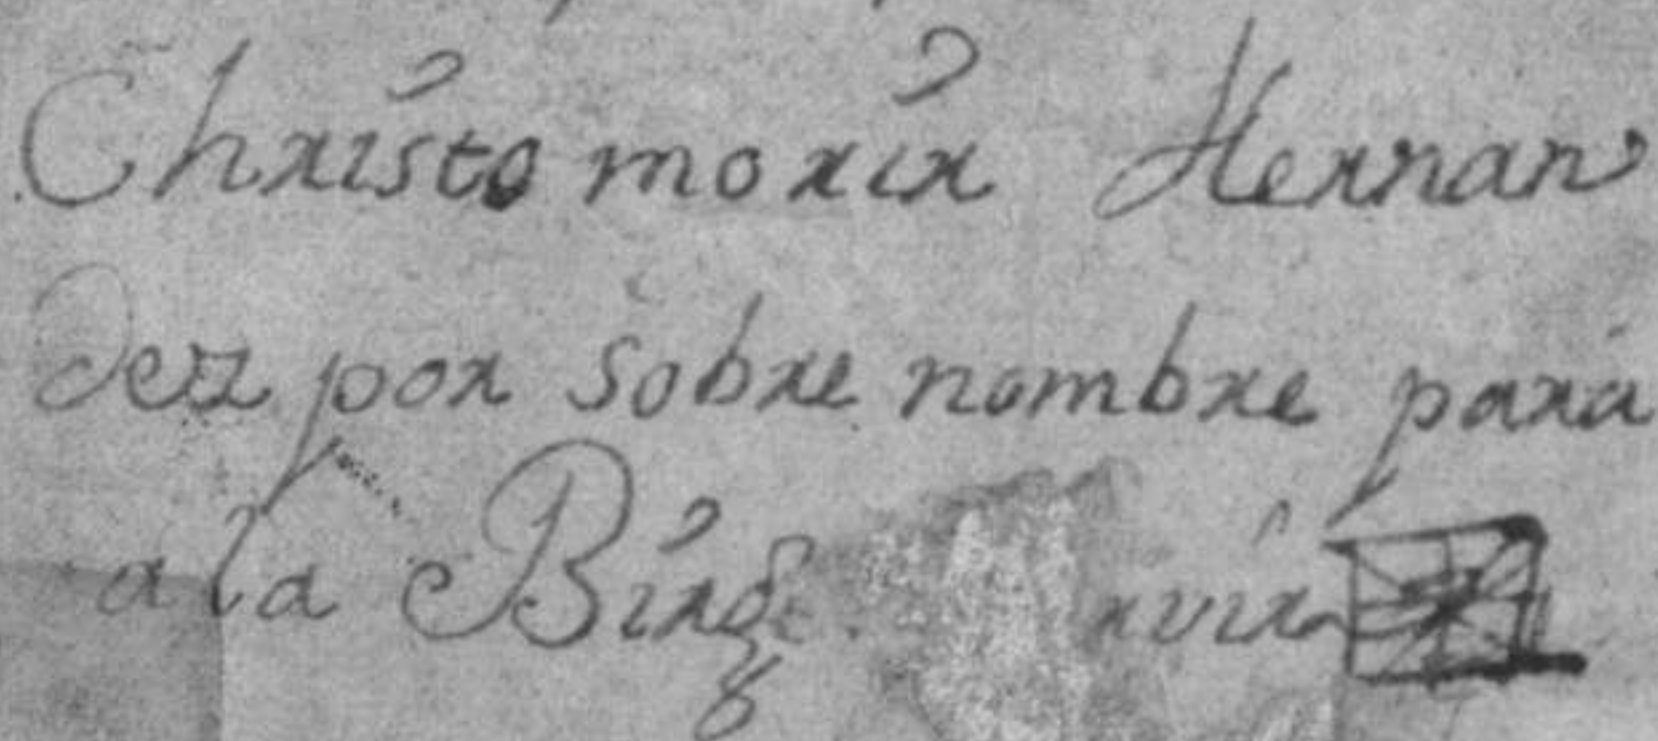 Christo morir Hernan
dez por sobre nombre para
a la Birge